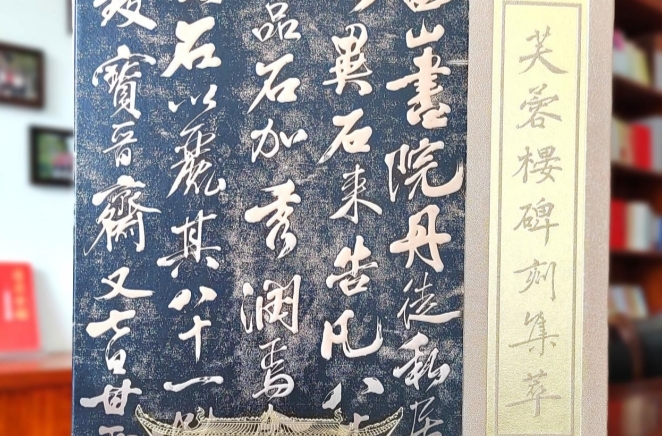 芙蓉楼碑刻集萃
山書院丹徒私居
異石来告凡八
品石加秀潤焉
石以麗其八十一
寶晋齋又七日甘